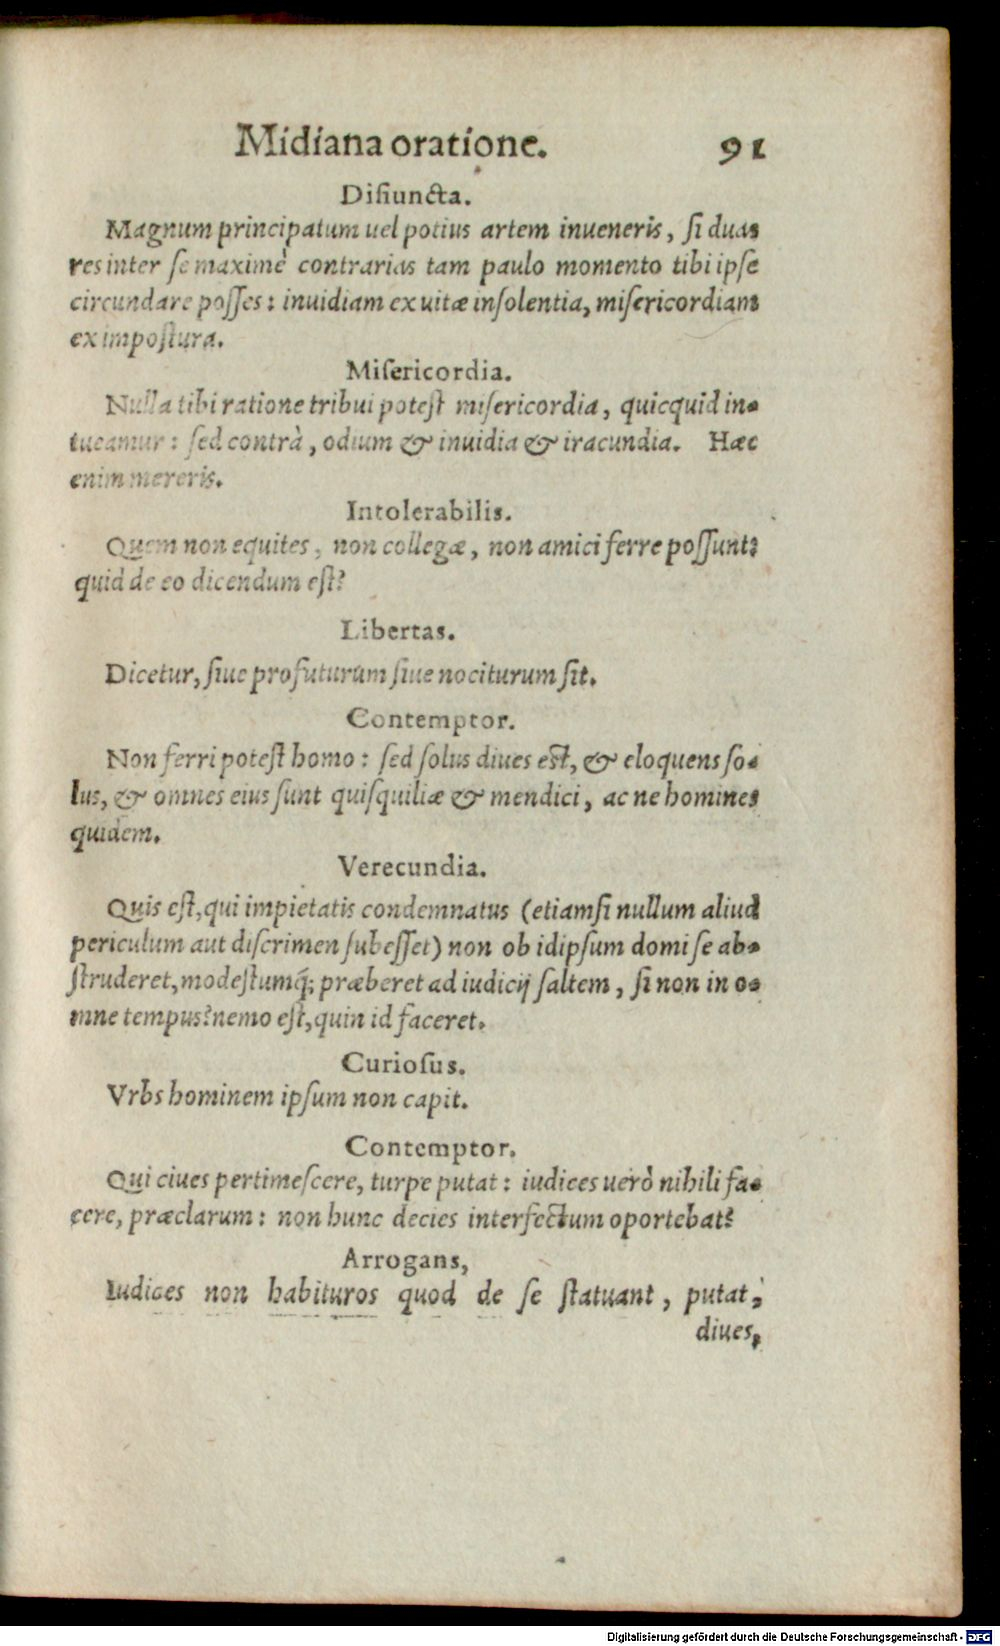 Midiana oratione. 91
Disiuncta.
Magnum principatum uel potius artem inueneris, si duas
res inter se maximè contrarias tam paulo momento tibi ipse
circundare posses: inuidiam ex uitæ insolentia, misericordiam
ex impostura.
Misericordia.
Nulla tibi ratione tribui potest misericordia, quicquid in-
tueamur: sed contrà, odium & inuidia & iracundia. Hæc
enim mereris.
Intolerabilis.
Quem non equites, non collegæ, non amici ferre possunt:
quid de eo dicendum est?
Libertas.
Dicetur, siue profuturum siue nociturum sit.
Contemptor.
Non ferri potest homo: sed solus diues est, & eloquens so-
lus, & omnes eius sunt quisquiliæ & mendici, ac ne homines
quidem.
Verecundia.
Quis est, qui impietatis condemnatus (etiamsi nullum aliud
periculum aut discrimen subesset) non ob idipsum domi se ab-
struderet, modestumq́; præberet ad iudicij saltem, si non in o-
mne tempus? nemo est, quin id faceret.
Curiosus.
Vrbs hominem ipsum non capit.
Contemptor.
Qui ciues pertimescere, turpe putat: iudices uerò nihili fa-
cere, præclarum: non hunc decies interfectum oportebat?
Arrogans,
Iudices non habituros quod de se statuant, putat;
diues,
Digitalisierung gefördert durch die Deutsche Forschungsgemeinschaft - DFG